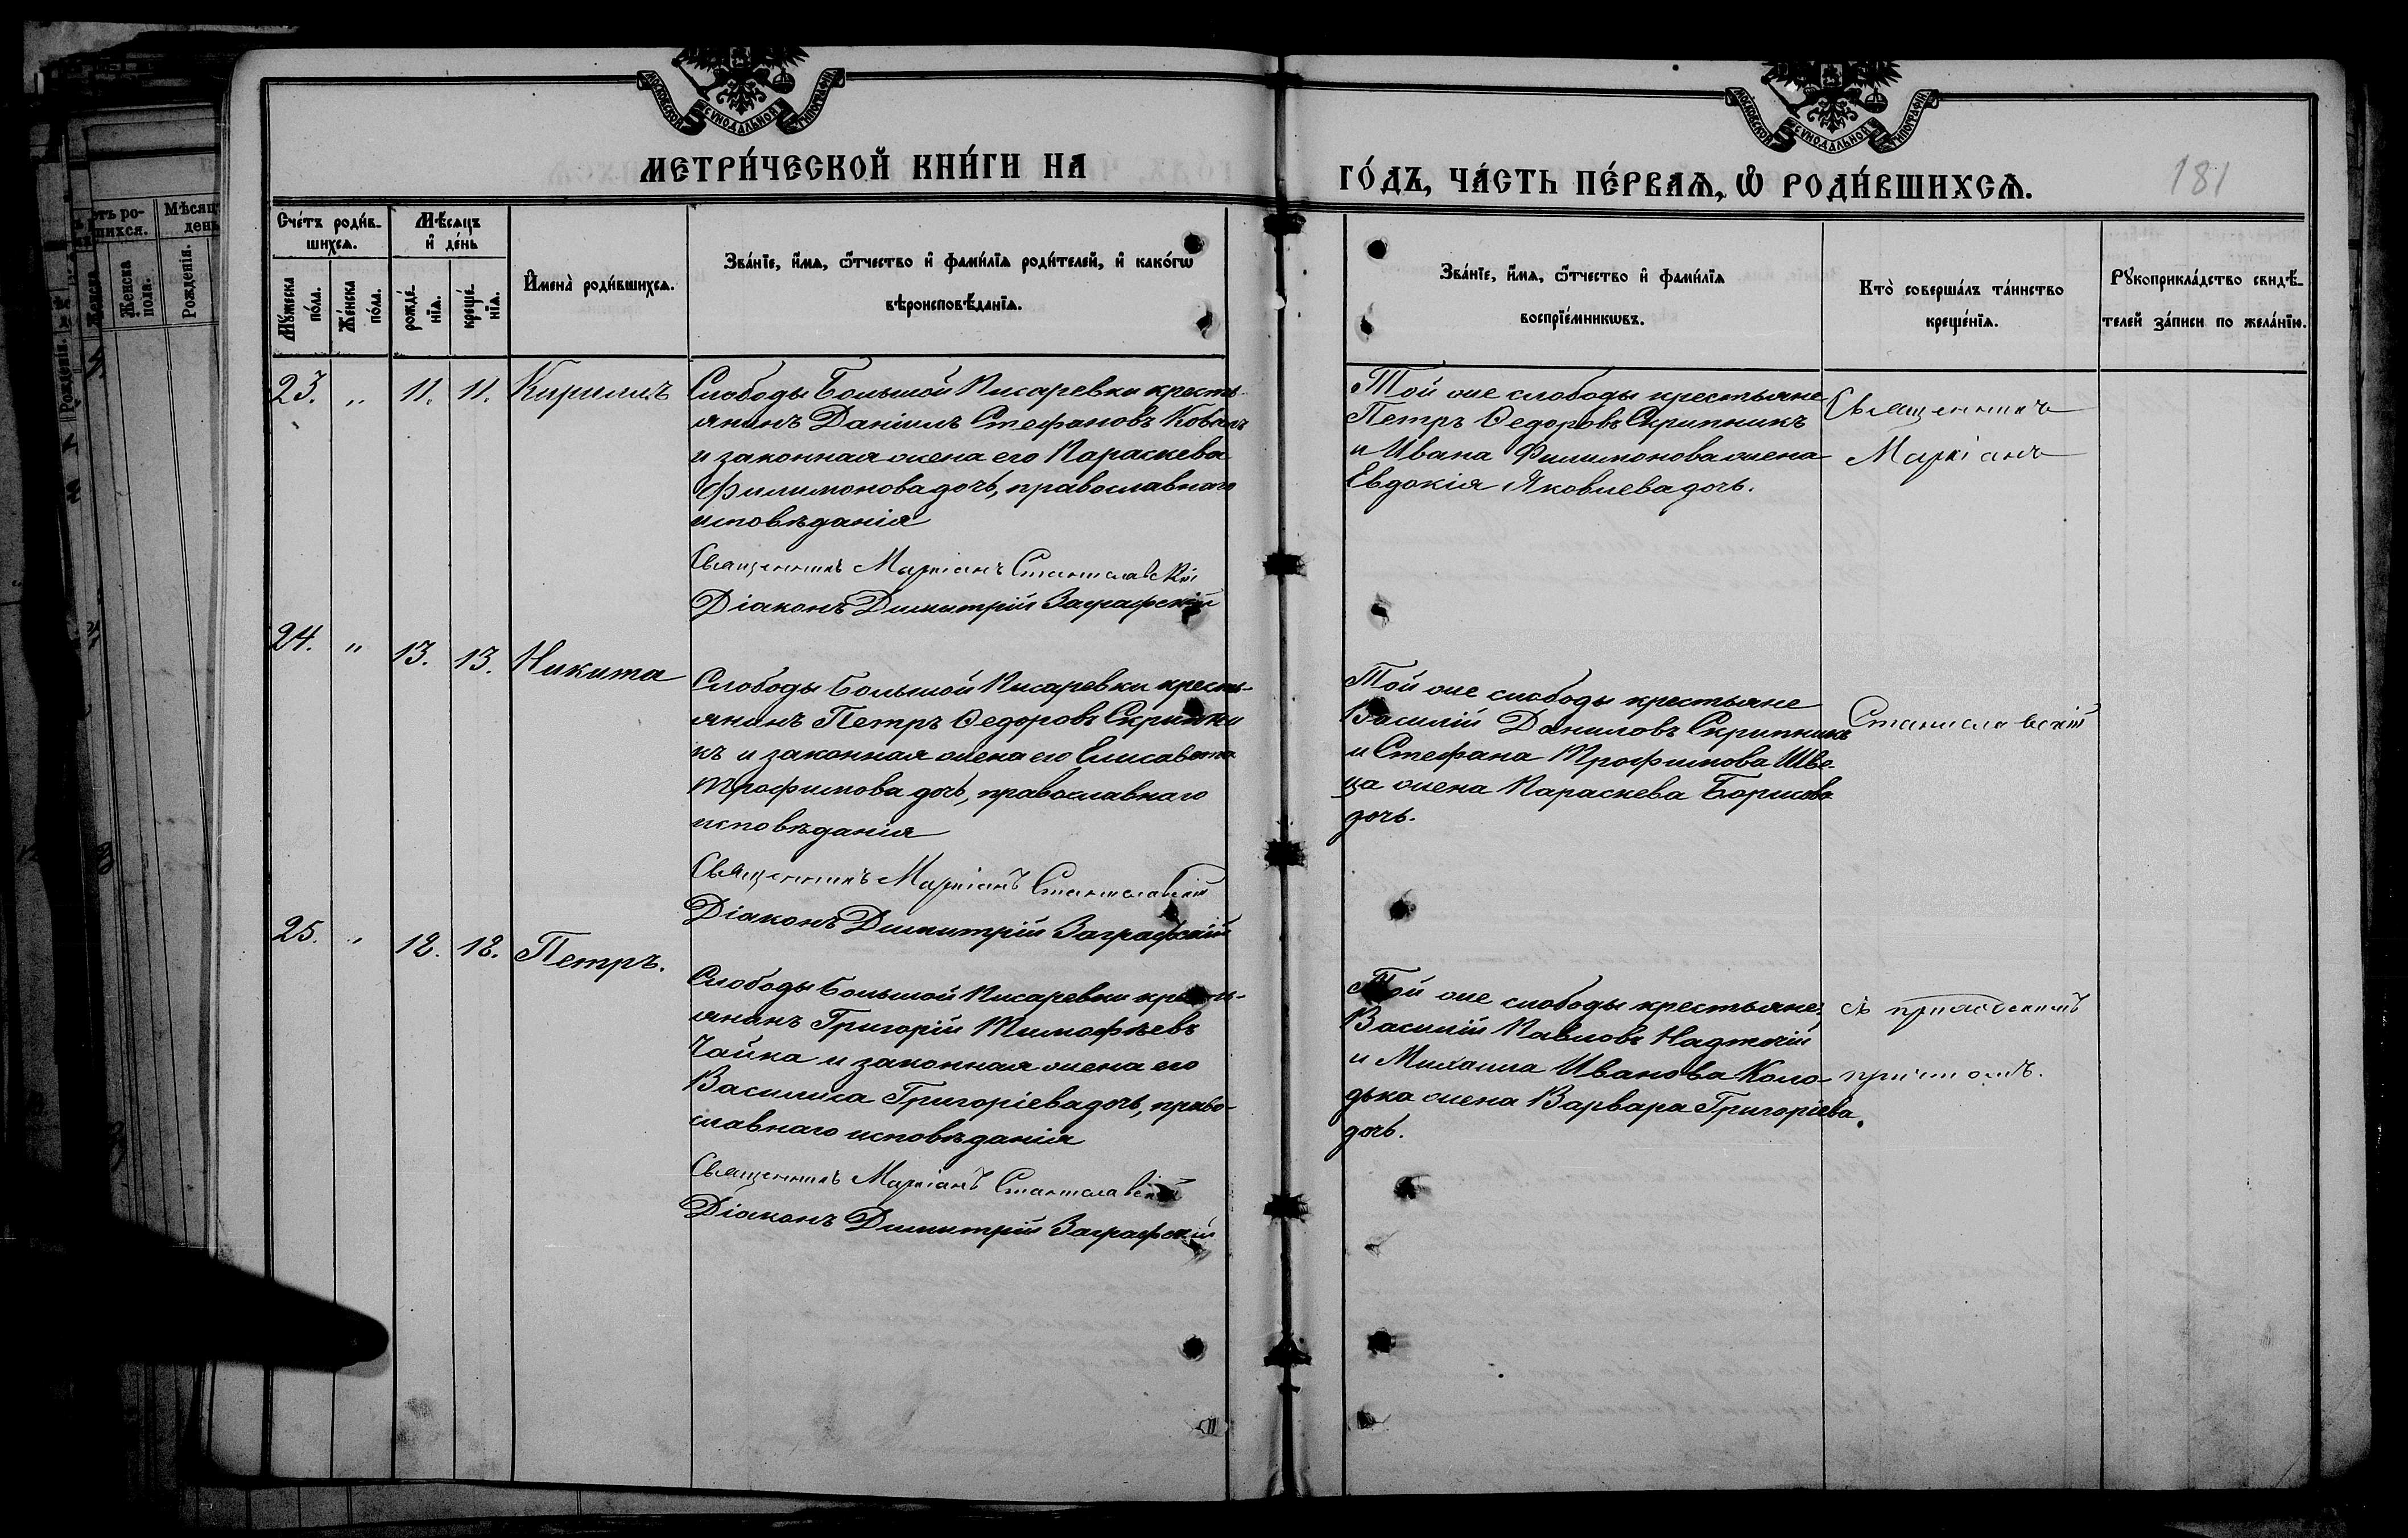 МОСКОВСКОЙ СѴНОДАЛЬНОЙ ТИПОГРАФІИ
МОСКОВСКОЙ СѴНОДАЛЬНОЙ ТИПОГРАФІИ
МЕТРИ́ЧЕСКОЙ КНИ́ГИ НА ГО́ДЪ, ЧА́СТЬ ПЕ́РВАѦ, Ѡ҆ РОДИ́ВШИХСѦ.
181
Сче́тъ роди́в-
шихсѧ.
Мѣ́сѧцъ
и҆ де́нь
Мꙋ́жеска
по́ла.
Же́нска
по́ла.
рожде́-
нїѧ.
креще́-
нїѧ.
И҆мена̀ роди́вшихсѧ.
Зва́нїе, и҆́мѧ, ѻ҆́тчество и҆ фами́лїѧ роди́телей, и҆ како́гѡ
вѣроисповѣ́данїѧ.
Зва́нїе, и҆́мѧ, ѻ҆́тчество и҆ фами́лїѧ
воспрїе́мникѡвъ.
Кто̀ соверша́лъ та́инство
креще́нїѧ.
Рꙋкоприкла́дство свидѣ́-
телей за́писи по жела́нїю.
23. " 11. 11. Кириллъ
Слободы Большой Писаревки кресть-
янинъ Даніилъ Стефановъ Коваль
и законная жена его Параскева
Филимонова дочь, православнаго
исповѣданія
Священникъ Маркіанъ Станиславскій
Діаконъ Димитрій Заграфскій
Той же слободы крестьяне
Петръ Ѳедоровъ Скрипникъ
и Ивана Филимонова жена
Евдокія Яковлева дочь.
Священникъ
Маркіанъ
24. " 13. 13. Никита
Слободы Большой Писаревки кресть-
янинъ Петръ Ѳедоровъ Скрипни
къ и законная жена его Елисавета
Трофимова дочь, православнаго
исповѣданія
Священникъ Маркіанъ Станиславскій
Діаконъ Димитрій Заграфскій
Той же слободы крестьяне
Василій Даниловъ Скрипникъ
и Стефана Трофимова Шве-
ца жена Параскева Борисова
дочь.
Станиславскій
25. " 18. 18. Петръ.
Слободы Большой Писаревки кресть-
янинъ Григорій Тимофѣевъ
Чайка и законная жена его
Василиса Григоріева дочь, право-
славнаго исповѣданія
Священникъ Маркіанъ Станиславскій
Діаконъ Димитрій Заграфскій
Той же слободы крестьяне
Василій Павловъ
и Михаила Иванова Коло-
дька жена Варвара Григоріева
дочь.
съ
причтомъ.